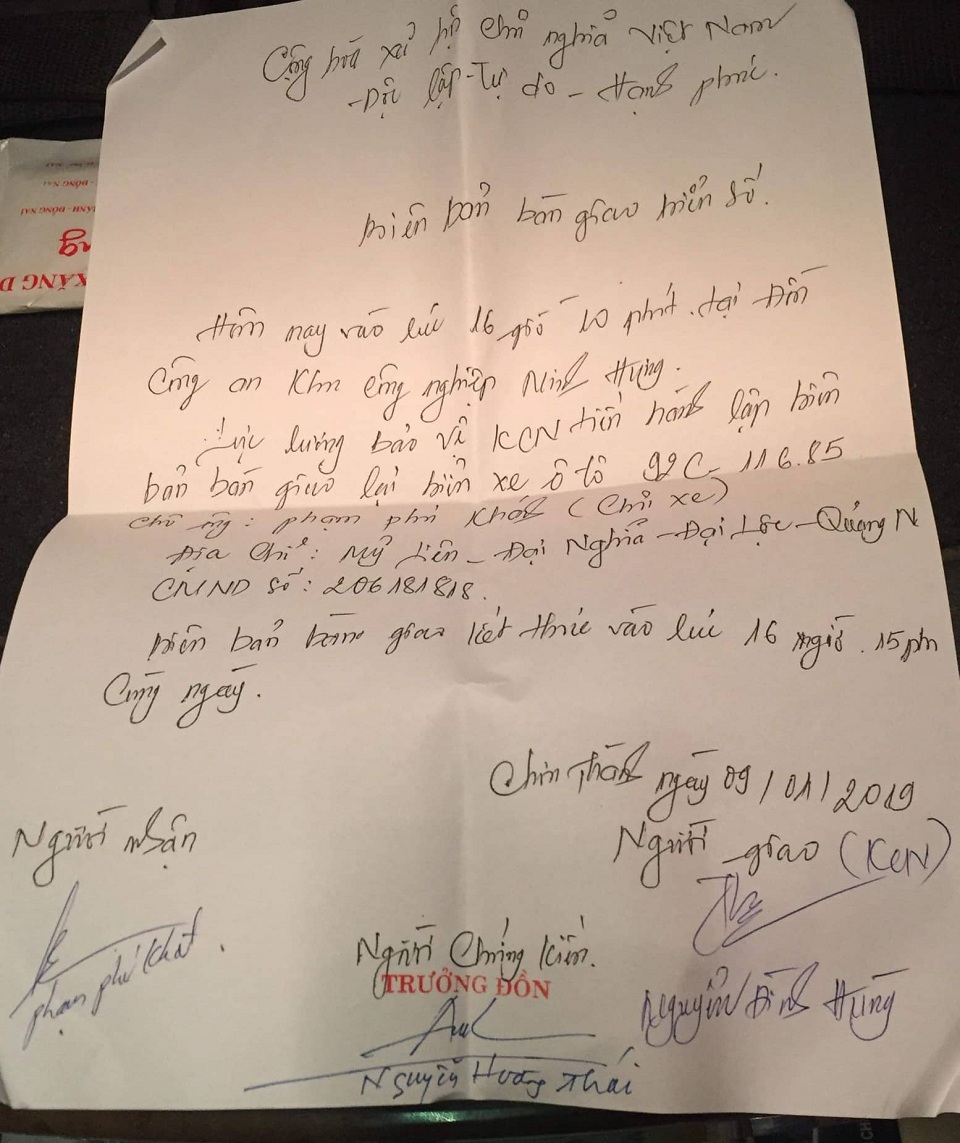 Cộng hòa xã hội chủ nghĩa Việt Nam
- Độc lập - Tự do - Hạnh phúc.
Biên bản bàn giao biển số.
Hôm nay vào lúc 16 giờ 10 phút. tại Đồn
Công an Khu công nghiệp Ninh Hưng.
Lực lượng bảo vệ KCN tiến hành lập biên
bản bàn giao lại biển xe ô tô 92C-116.85
cho ông: Phạm Phú Khát (Chủ xe)
Địa Chỉ: Mỹ Liên - Đại Nghĩa - Đại Lộc - Quảng N
CMND Số: 206181818.
Biên bản bàn giao kết thúc vào lúc 16 giờ. 15ph
Cùng ngày.
Chơn Thành ngày 09/01/2019
Người nhận
Người giao (KCN)
phạm phú Khát.
Người Chứng kiến.
TRƯỞNG ĐỒN
Nguyễn Đình Hùng
Nguyễn Hương Thái
XĂNG D
ng
ÀNH - ĐỒNG NAI
- ĐỒNG NAI